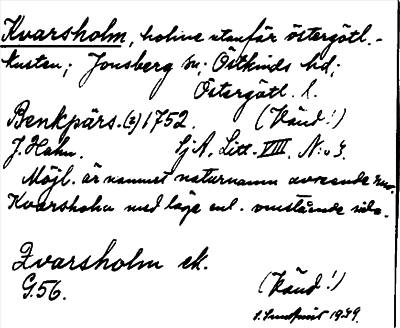 Kvarsholm, holme utanför östergötl.-
kusten; Jonsberg sn; Östkinds hd;
Östergötl. l.
Benkpärs.(?) 1752. (Vänd!)
J. Hahn. SjA. Litt. VIII. N:o 3.
Möjl. är namnet naturnamn avseende
Kvarsholm med läge enl. omstående sida.
Kvarsholm ek.
G.56. (Vänd!)
S. Sundqvist 1939.